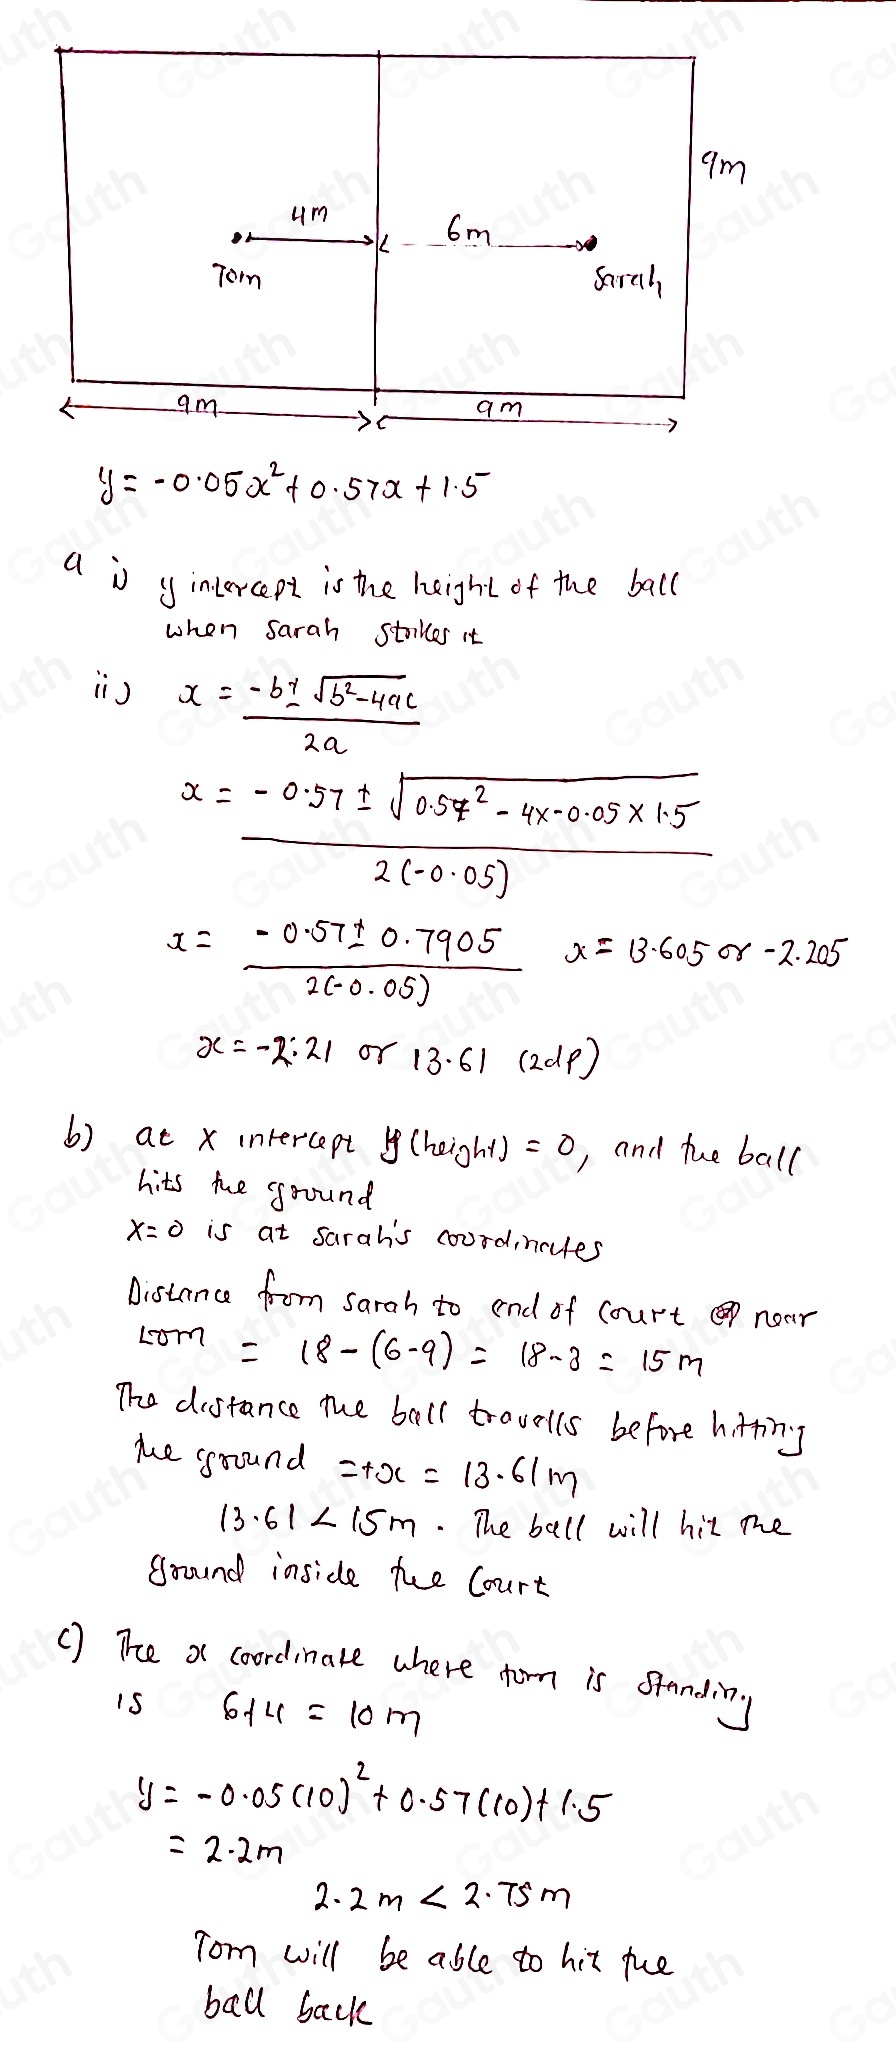 9m
4m
6m
Tom
Sarah
9m
9m
y = -0.05x² + 0.57x + 1.5
a i) y intercept is the height of the ball
when Sarah strikes it
ii) x = -b ± √b²-4ac
2a
x = -0.57 ± √0.57² - 4x-0.05 x 1.5
2(-0.05)
x = -0.57 ± 0.7905 x = 13.605 or -2.205
2(-0.05)
x = -2.21 or 13.61 (2dp)
b) at x intercept y (height) = 0, and the ball
hits the ground
x=0 is at Sarah's coordinates
Distance from Sarah to end of court near
Tom = 18-(6-9) = 18-3 = 15m
The distance the ball travells before hitting
the ground = +x = 13.61m
13.61 < 15m. The ball will hit the
ground inside the Court
c) The x coordinate where tom is standing
is 6+4 = 10m
y = -0.05(10)² + 0.57(10) + 1.5
= 2.2m
2.2m < 2.75m
Tom will be able to hit the
ball back
Gauth